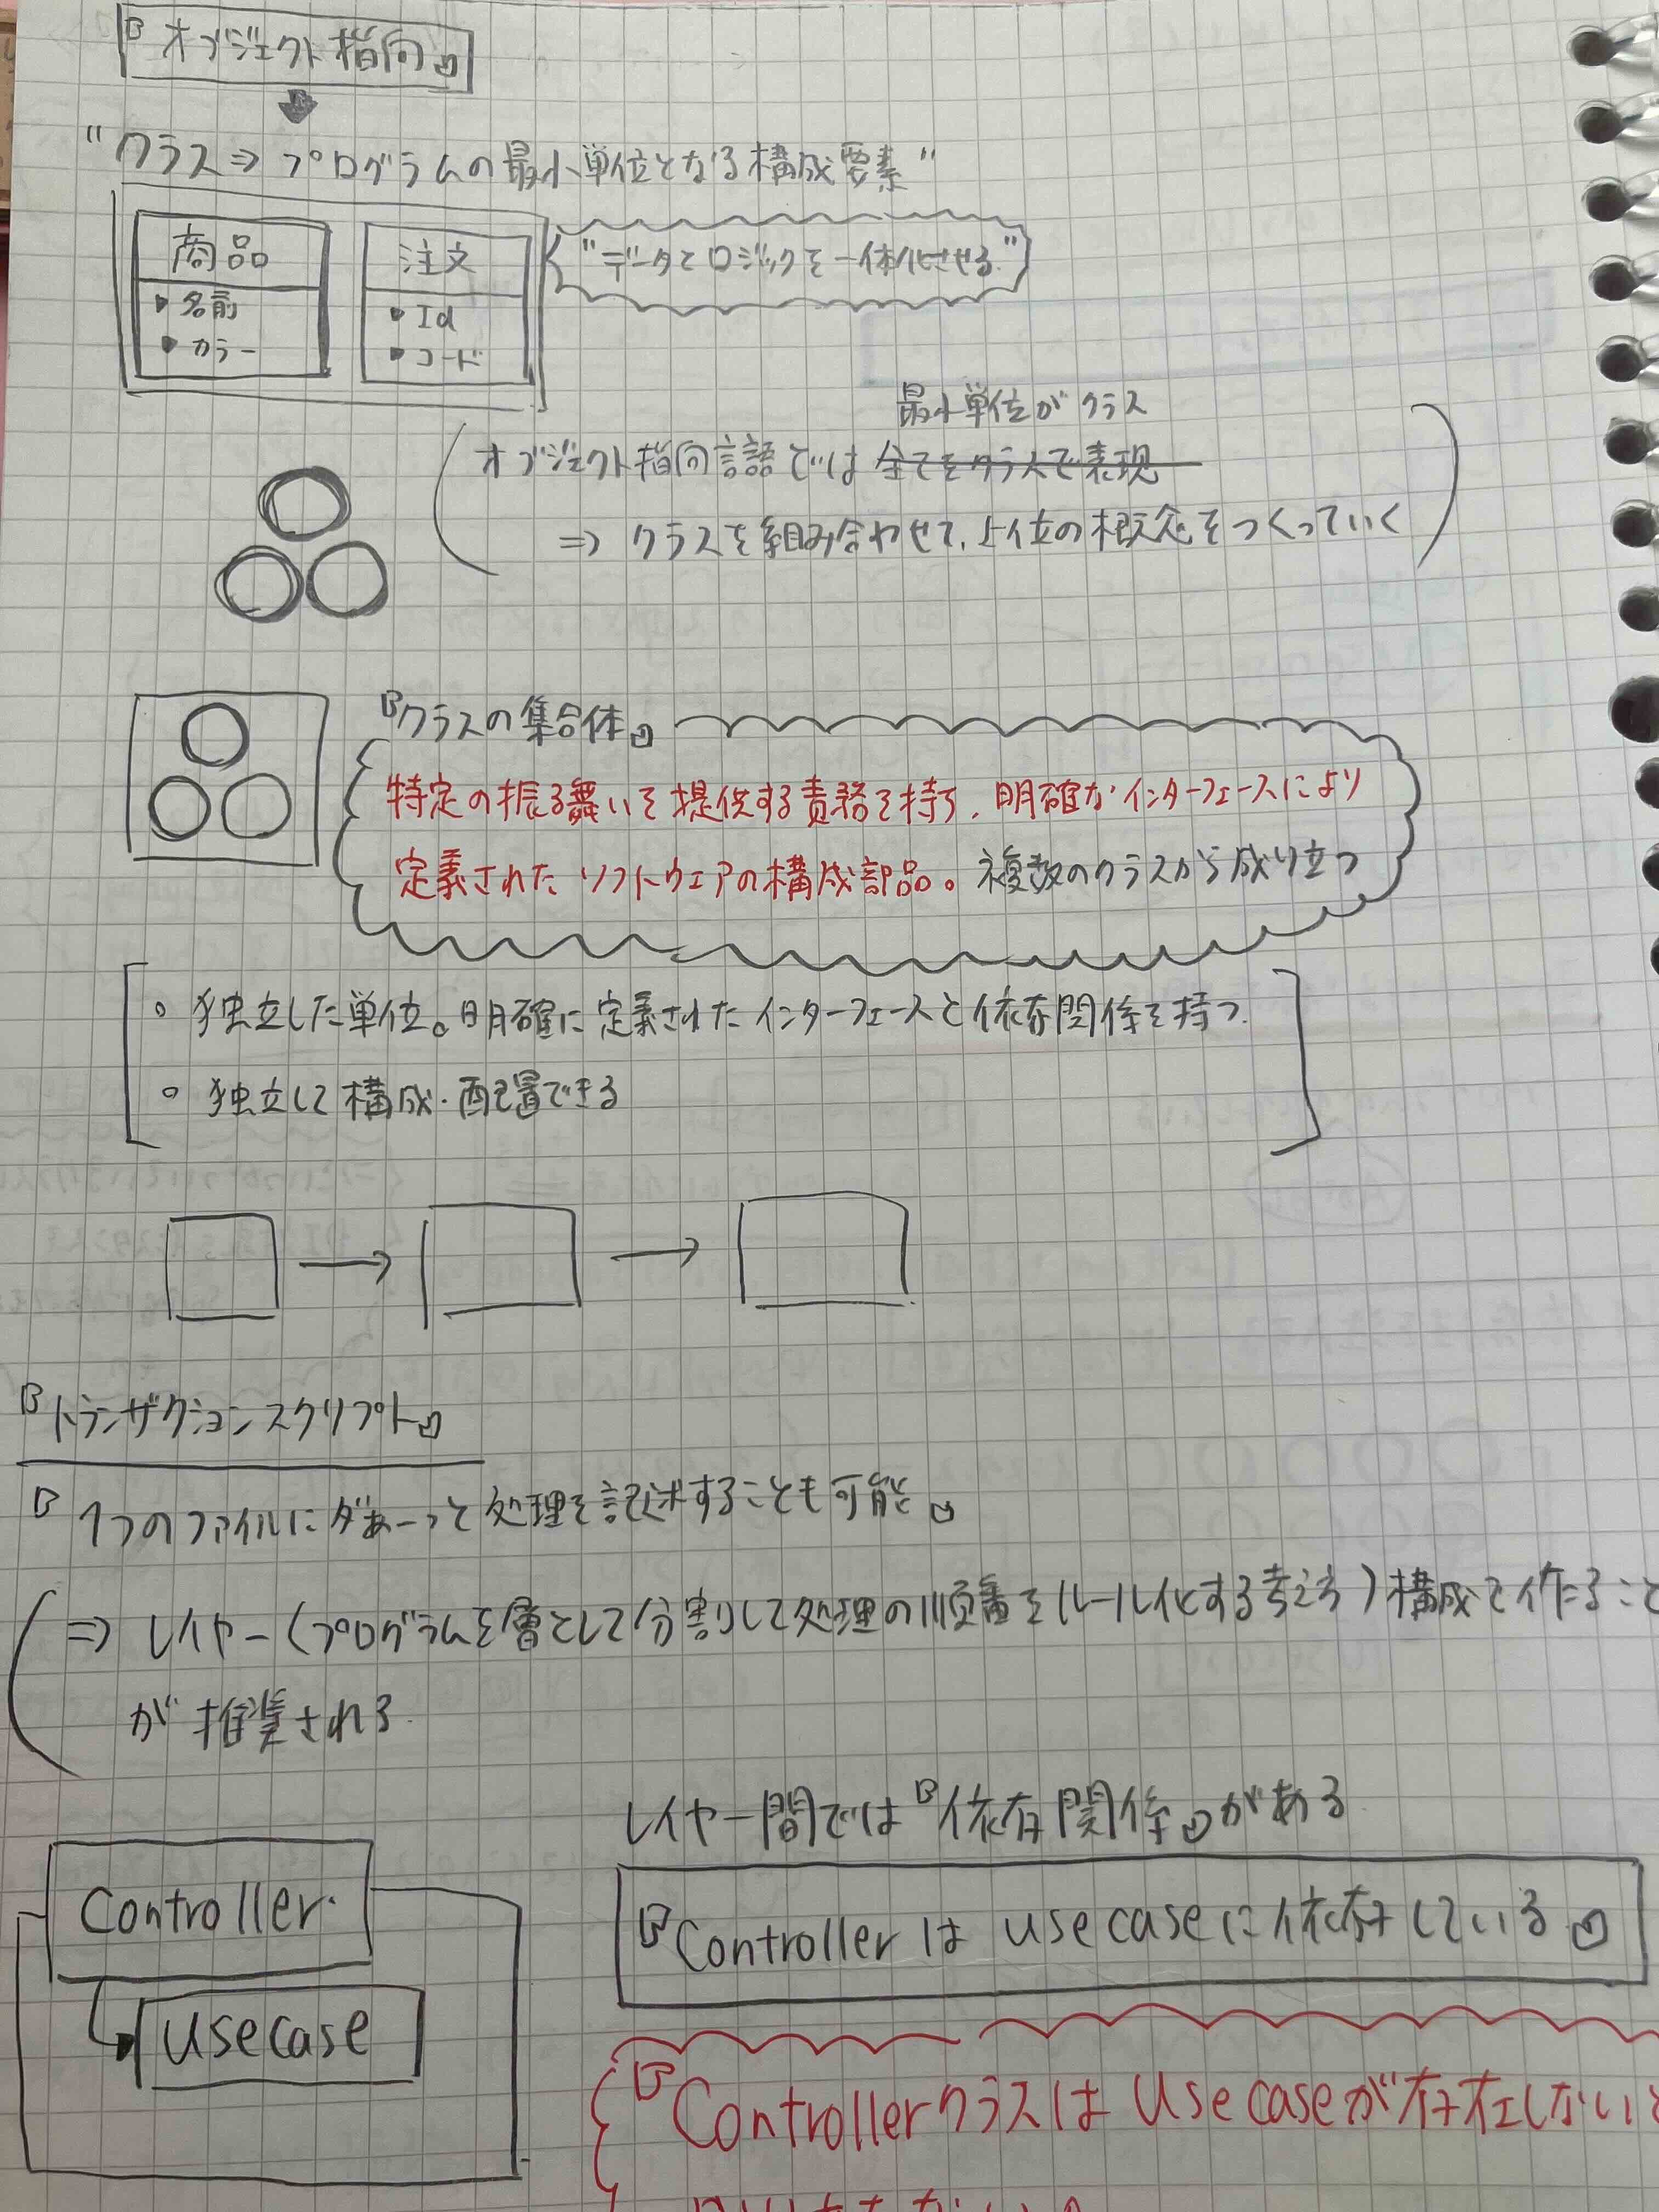 『オブジェクト指向』
"クラス⇒プログラムの最小単位となる構成要素"
商品
・名前
・カラー
注文
・Id
・コード
"データとロジックを一体化させる"
最小単位がクラス
オブジェクト指向言語では全てをクラスで表現
⇒ クラスを組み合わせて、上位の概念をつくっていく
『クラスの集合体』
特定の振る舞いを提供する責務を持ち、明確なインターフェースにより
定義されたソフトウェアの構成部品。複数のクラスから成り立つ
○ 独立した単位。明確に定義されたインターフェースと依存関係を持つ.
○ 独立して構成・配置できる
『トランザクションスクリプト』
『1つのファイルにダぁーっと処理を記述することも可能』
⇒ レイヤー(プログラムを層として分割して処理の順番をルール化する考え方)構成で作ること
が推奨される.
レイヤー間では『依存関係』がある
Controller
usecase
『Controllerは usecaseに依存している』
『Controllerクラスは usecaseが存在しないと